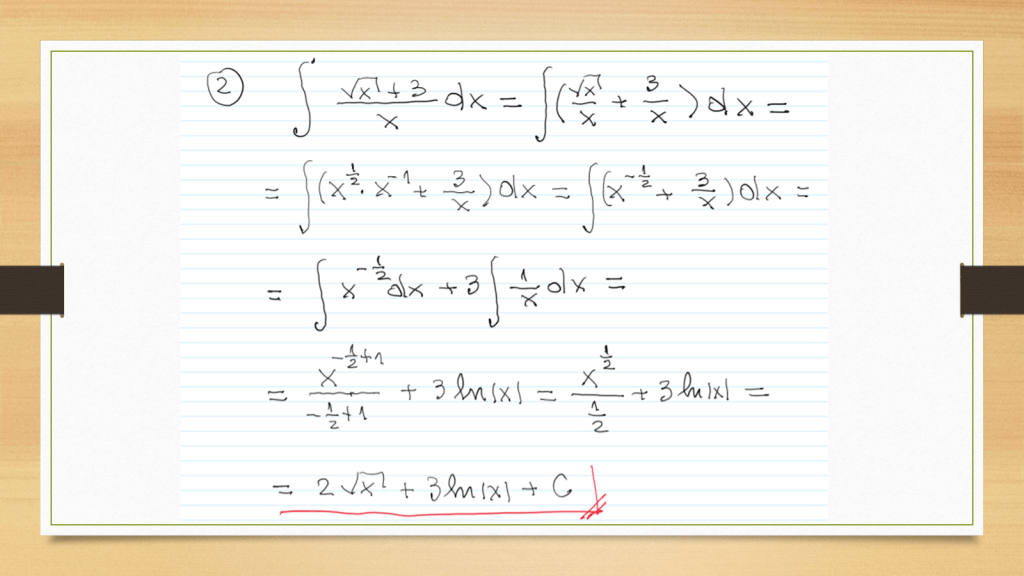 ② ∫ (√x + 3)/x dx = ∫ (√x/x + 3/x) dx =
= ∫ (x^(1/2) · x^(-1) + 3/x) dx = ∫ (x^(-1/2) + 3/x) dx =
= ∫ x^(-1/2) dx + 3 ∫ 1/x dx =
= x^(-1/2+1)/(-1/2+1) + 3 ln|x| = x^(1/2)/(1/2) + 3 ln|x| =
= 2√x + 3 ln|x| + C